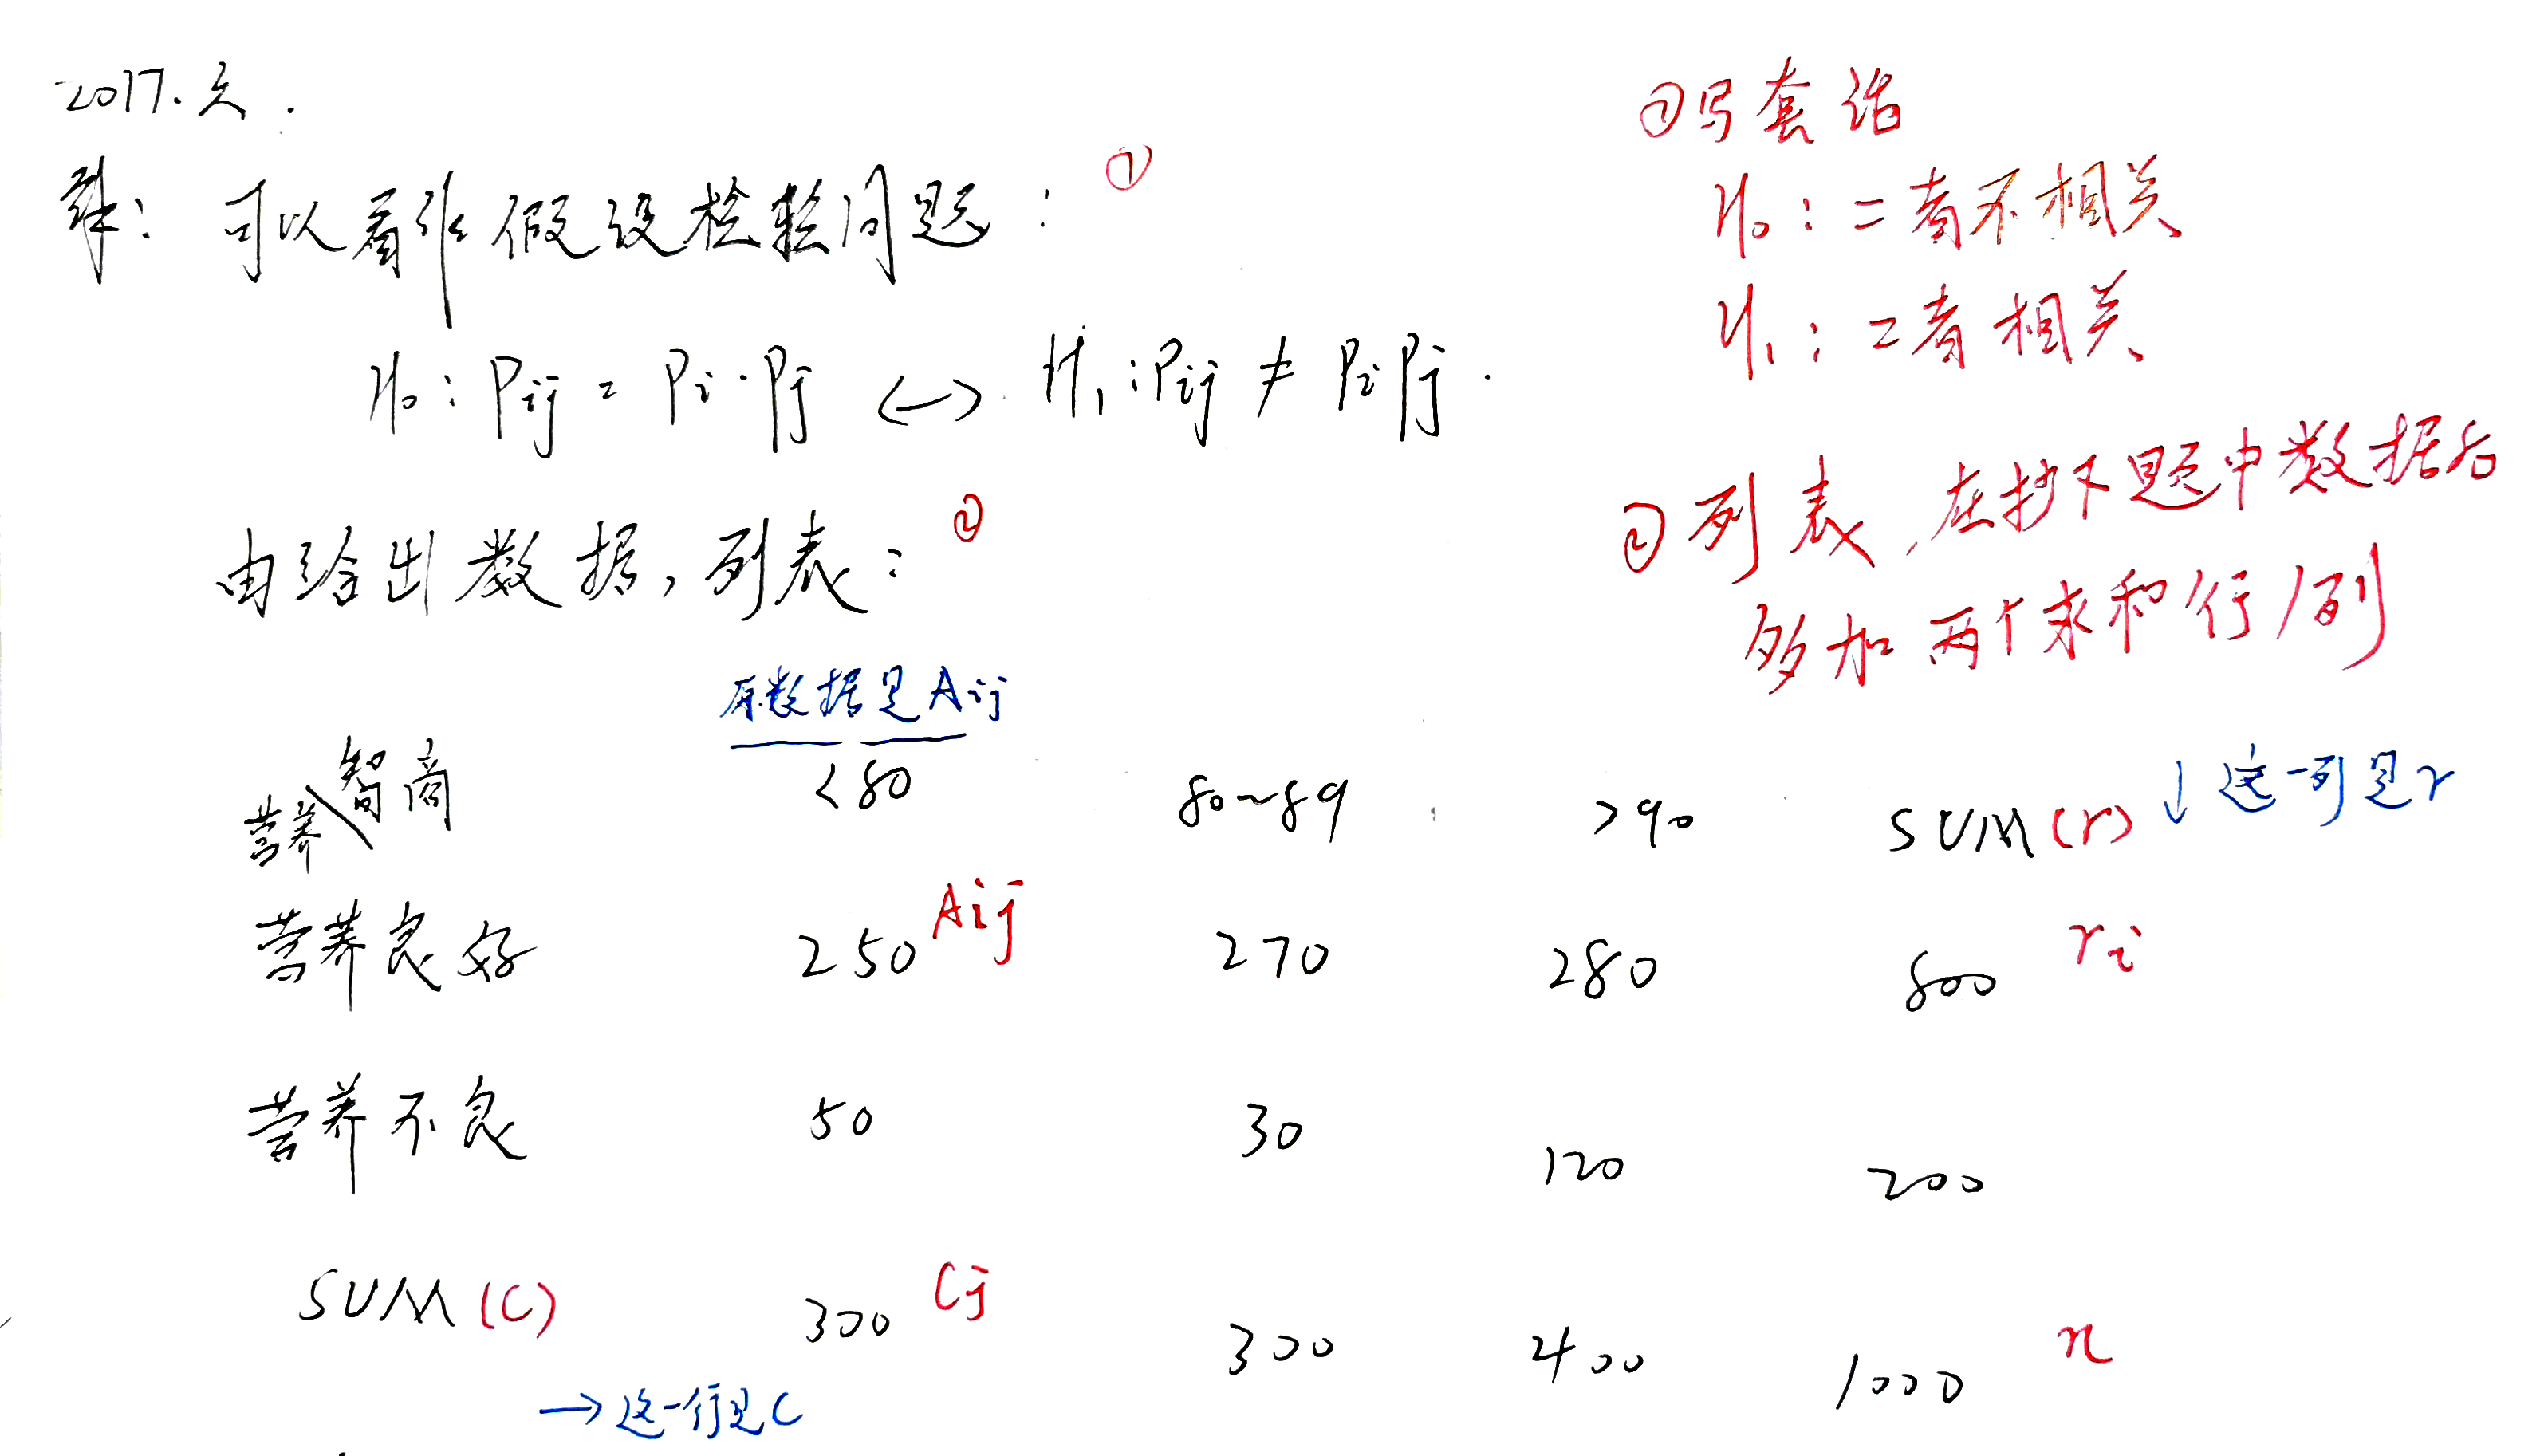 2017.六.
解：可以看作假设检验问题：①
H₀：Pij = Pi·Pj <—> H₁：Pij ≠ PiPj.
由给出数据，列表：②
①写套话
H₀：二者不相关
H₁：二者相关
②列表，在抄下题中数据后
多加两个求和行/列
原数据是Aij
营养\智商 <80 80~89 >90 SUM(r) ↓这一列是r
营养良好 250 Aij 270 280 800 ri
营养不良 50 30 120 200
SUM(C) 300 Cj 300 400 1000 n
→这一行是C